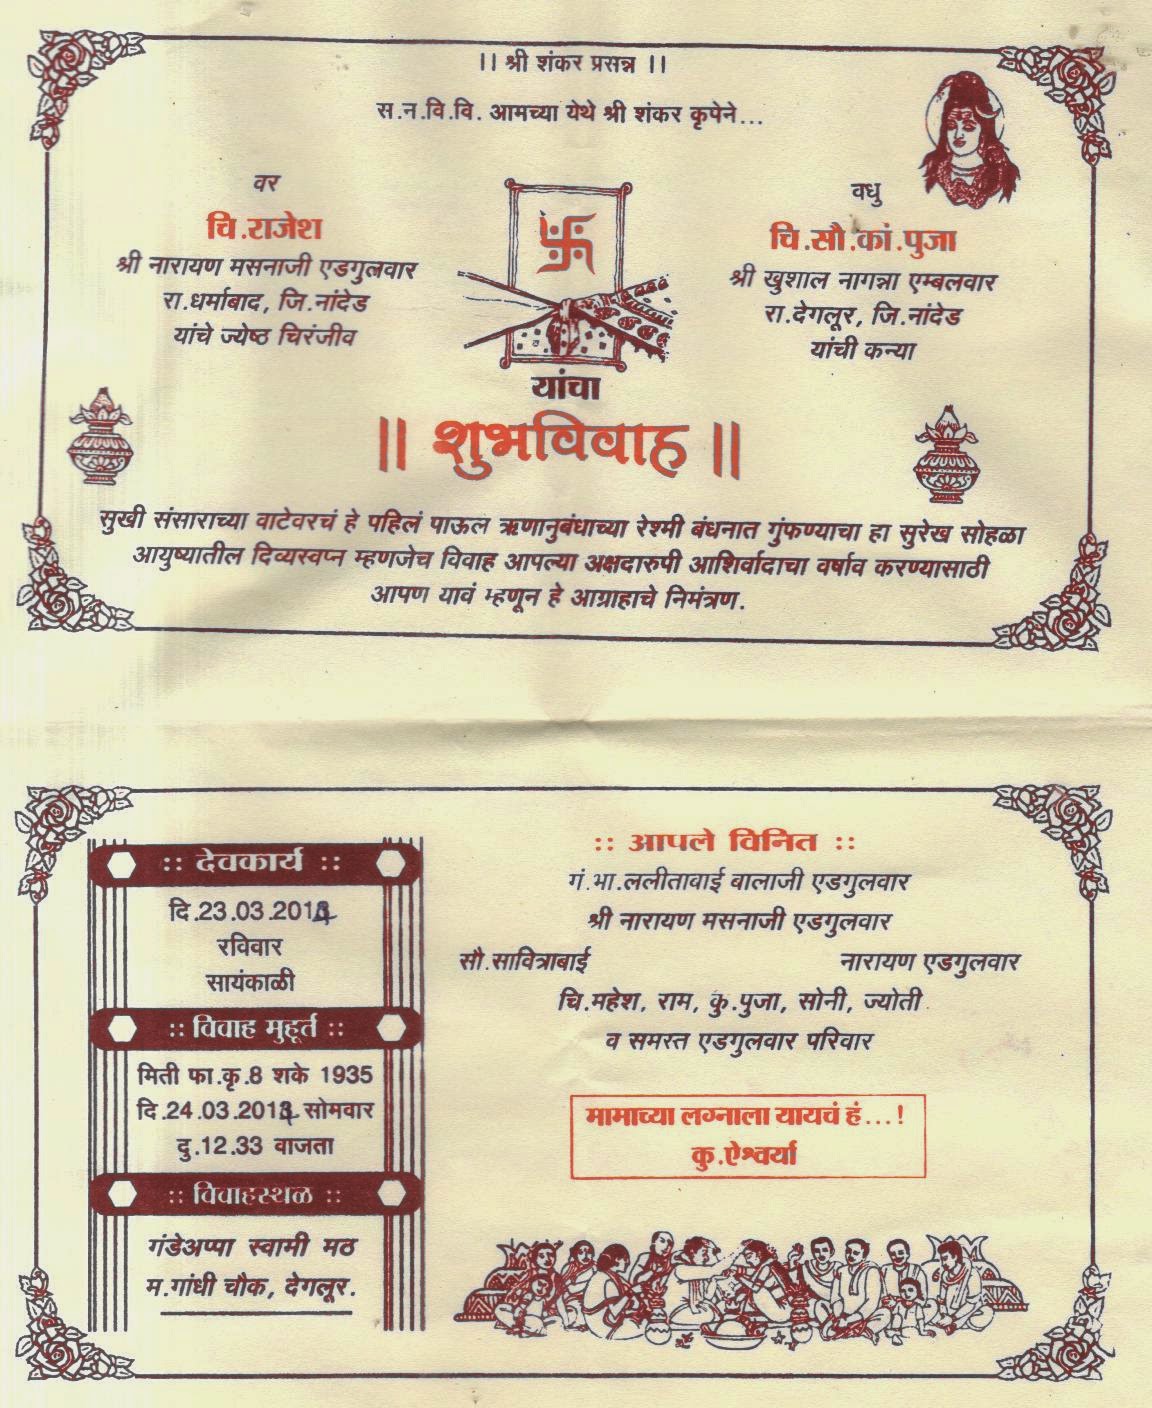 ।। श्री शंकर प्रसन्न ।।
स.न.वि.वि. आमच्या येथे श्री शंकर कृपेने...
वर
चि.राजेश
श्री नारायण मसनाजी एडगुलवार
रा.धर्माबाद, जि.नांदेड
यांचे ज्येष्ठ चिरंजीव
वधु
चि.सौ.कां.पुजा
श्री खुशाल नागन्ना एम्बलवार
रा.देगलूर, जि.नांदेड
यांची कन्या
यांचा
|| शुभविवाह ||
सुखी संसाराच्या वाटेवरचं हे पहिलं पाऊल ऋणानुबंधाच्या रेश्मी बंधनात गुंफण्याचा हा सुरेख सोहळा
आयुष्यातील दिव्यस्वप्न म्हणजेच विवाह आपल्या अक्षदारुपी आशिर्वादाचा वर्षाव करण्यासाठी
आपण यावं म्हणून हे आग्राहाचे निमंत्रण.
:: देवकार्य ::
दि.23.03.2014
रविवार
सायंकाळी
:: विवाह मुहूर्त ::
मिती फा.कृ.8 शके 1935
दि.24.03.2014 सोमवार
दु.12.33 वाजता
:: विवाहस्थळ ::
गंडेअप्पा स्वामी मठ
म.गांधी चौक, देगलूर.
:: आपले विनित ::
गं.भा.ललीताबाई बालाजी एडगुलवार
श्री नारायण मसनाजी एडगुलवार
सौ.सावित्राबाई नारायण एडगुलवार
चि.महेश, राम, कु.पुजा, सोनी, ज्योती
व समस्त एडगुलवार परिवार
मामाच्या लग्नाला यायचं हं...!
कु.ऐश्वर्या